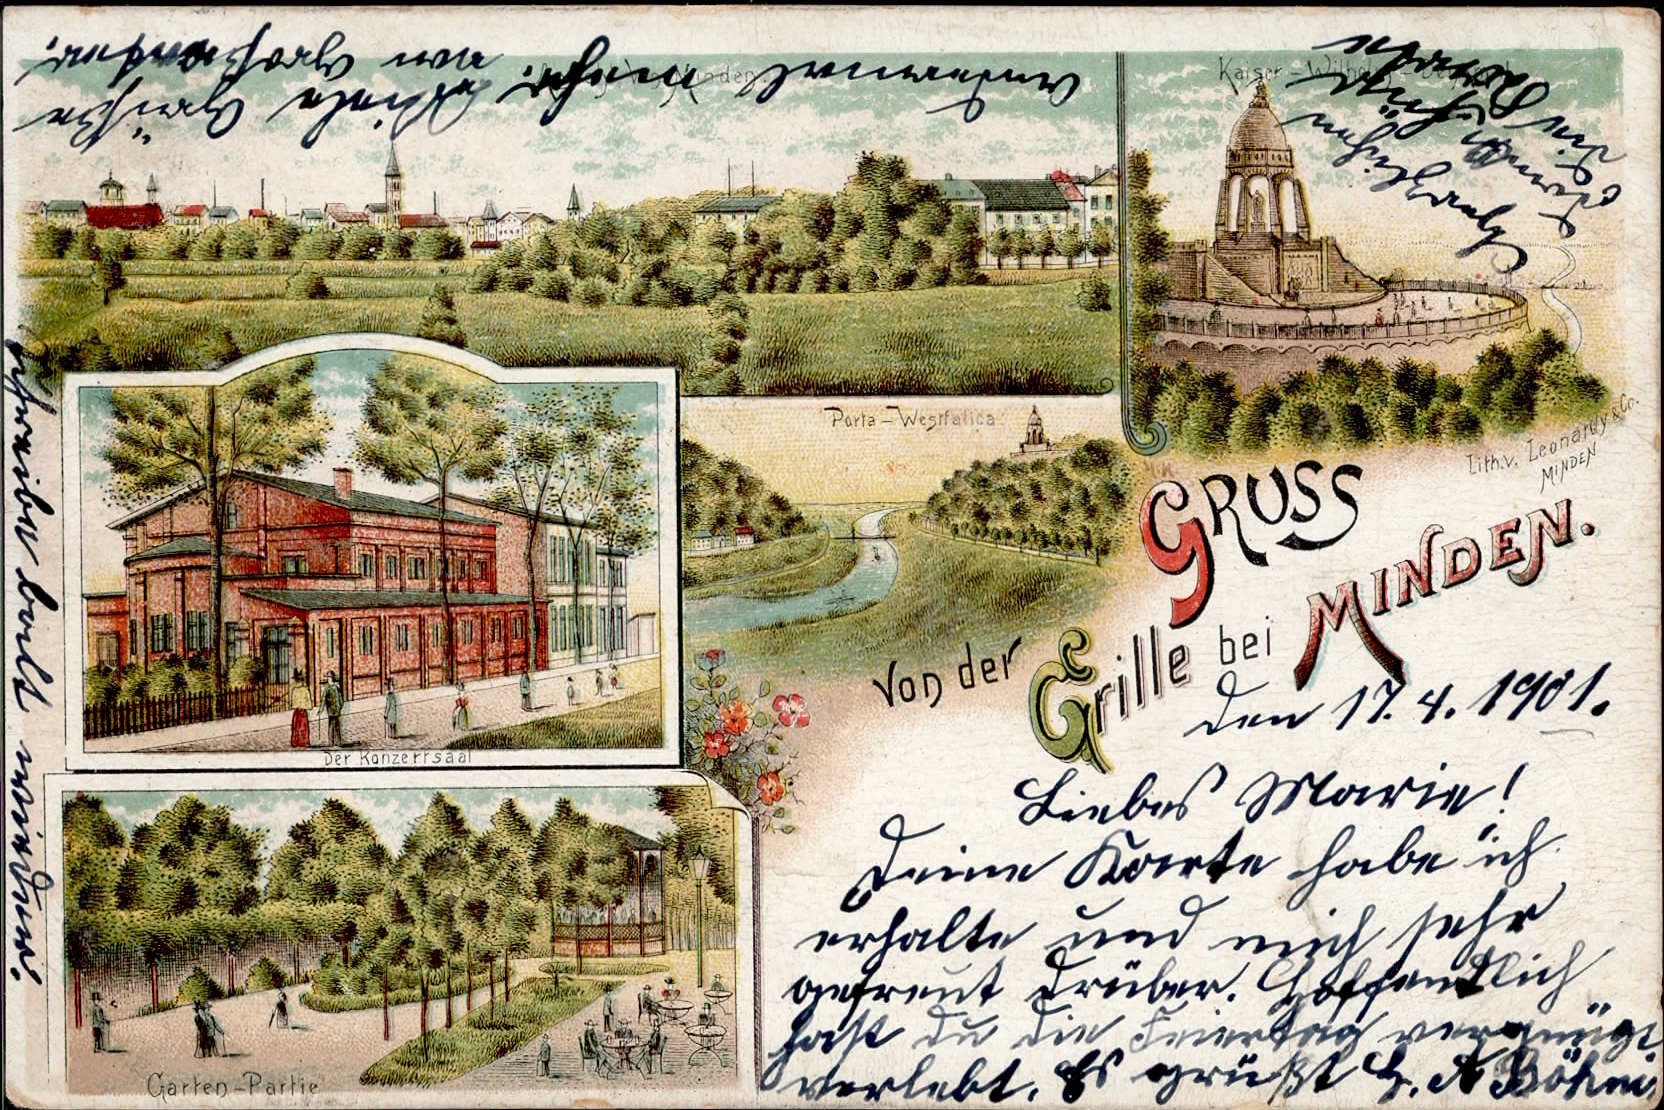 Minden
Kaiser-Wilhelm-Denkmal
Porta-Westfalica
Lith. v. Leonardy & Co.
MINDEN
GRUSS
Von der Grille bei MINDEN.
Der Konzertsaal
Garten-Partie
den 17. 4. 1901.
Liebes Marie!
Deine Karte habe ich
erhalte und mich sehr
gefreut drüber. Hoffentlich
hast du die Feiertag vergnügt
verlebt. Es grüßt H.
schreibe bald wieder.
andermal mehr. Viele Grüße
von
Herzlichen